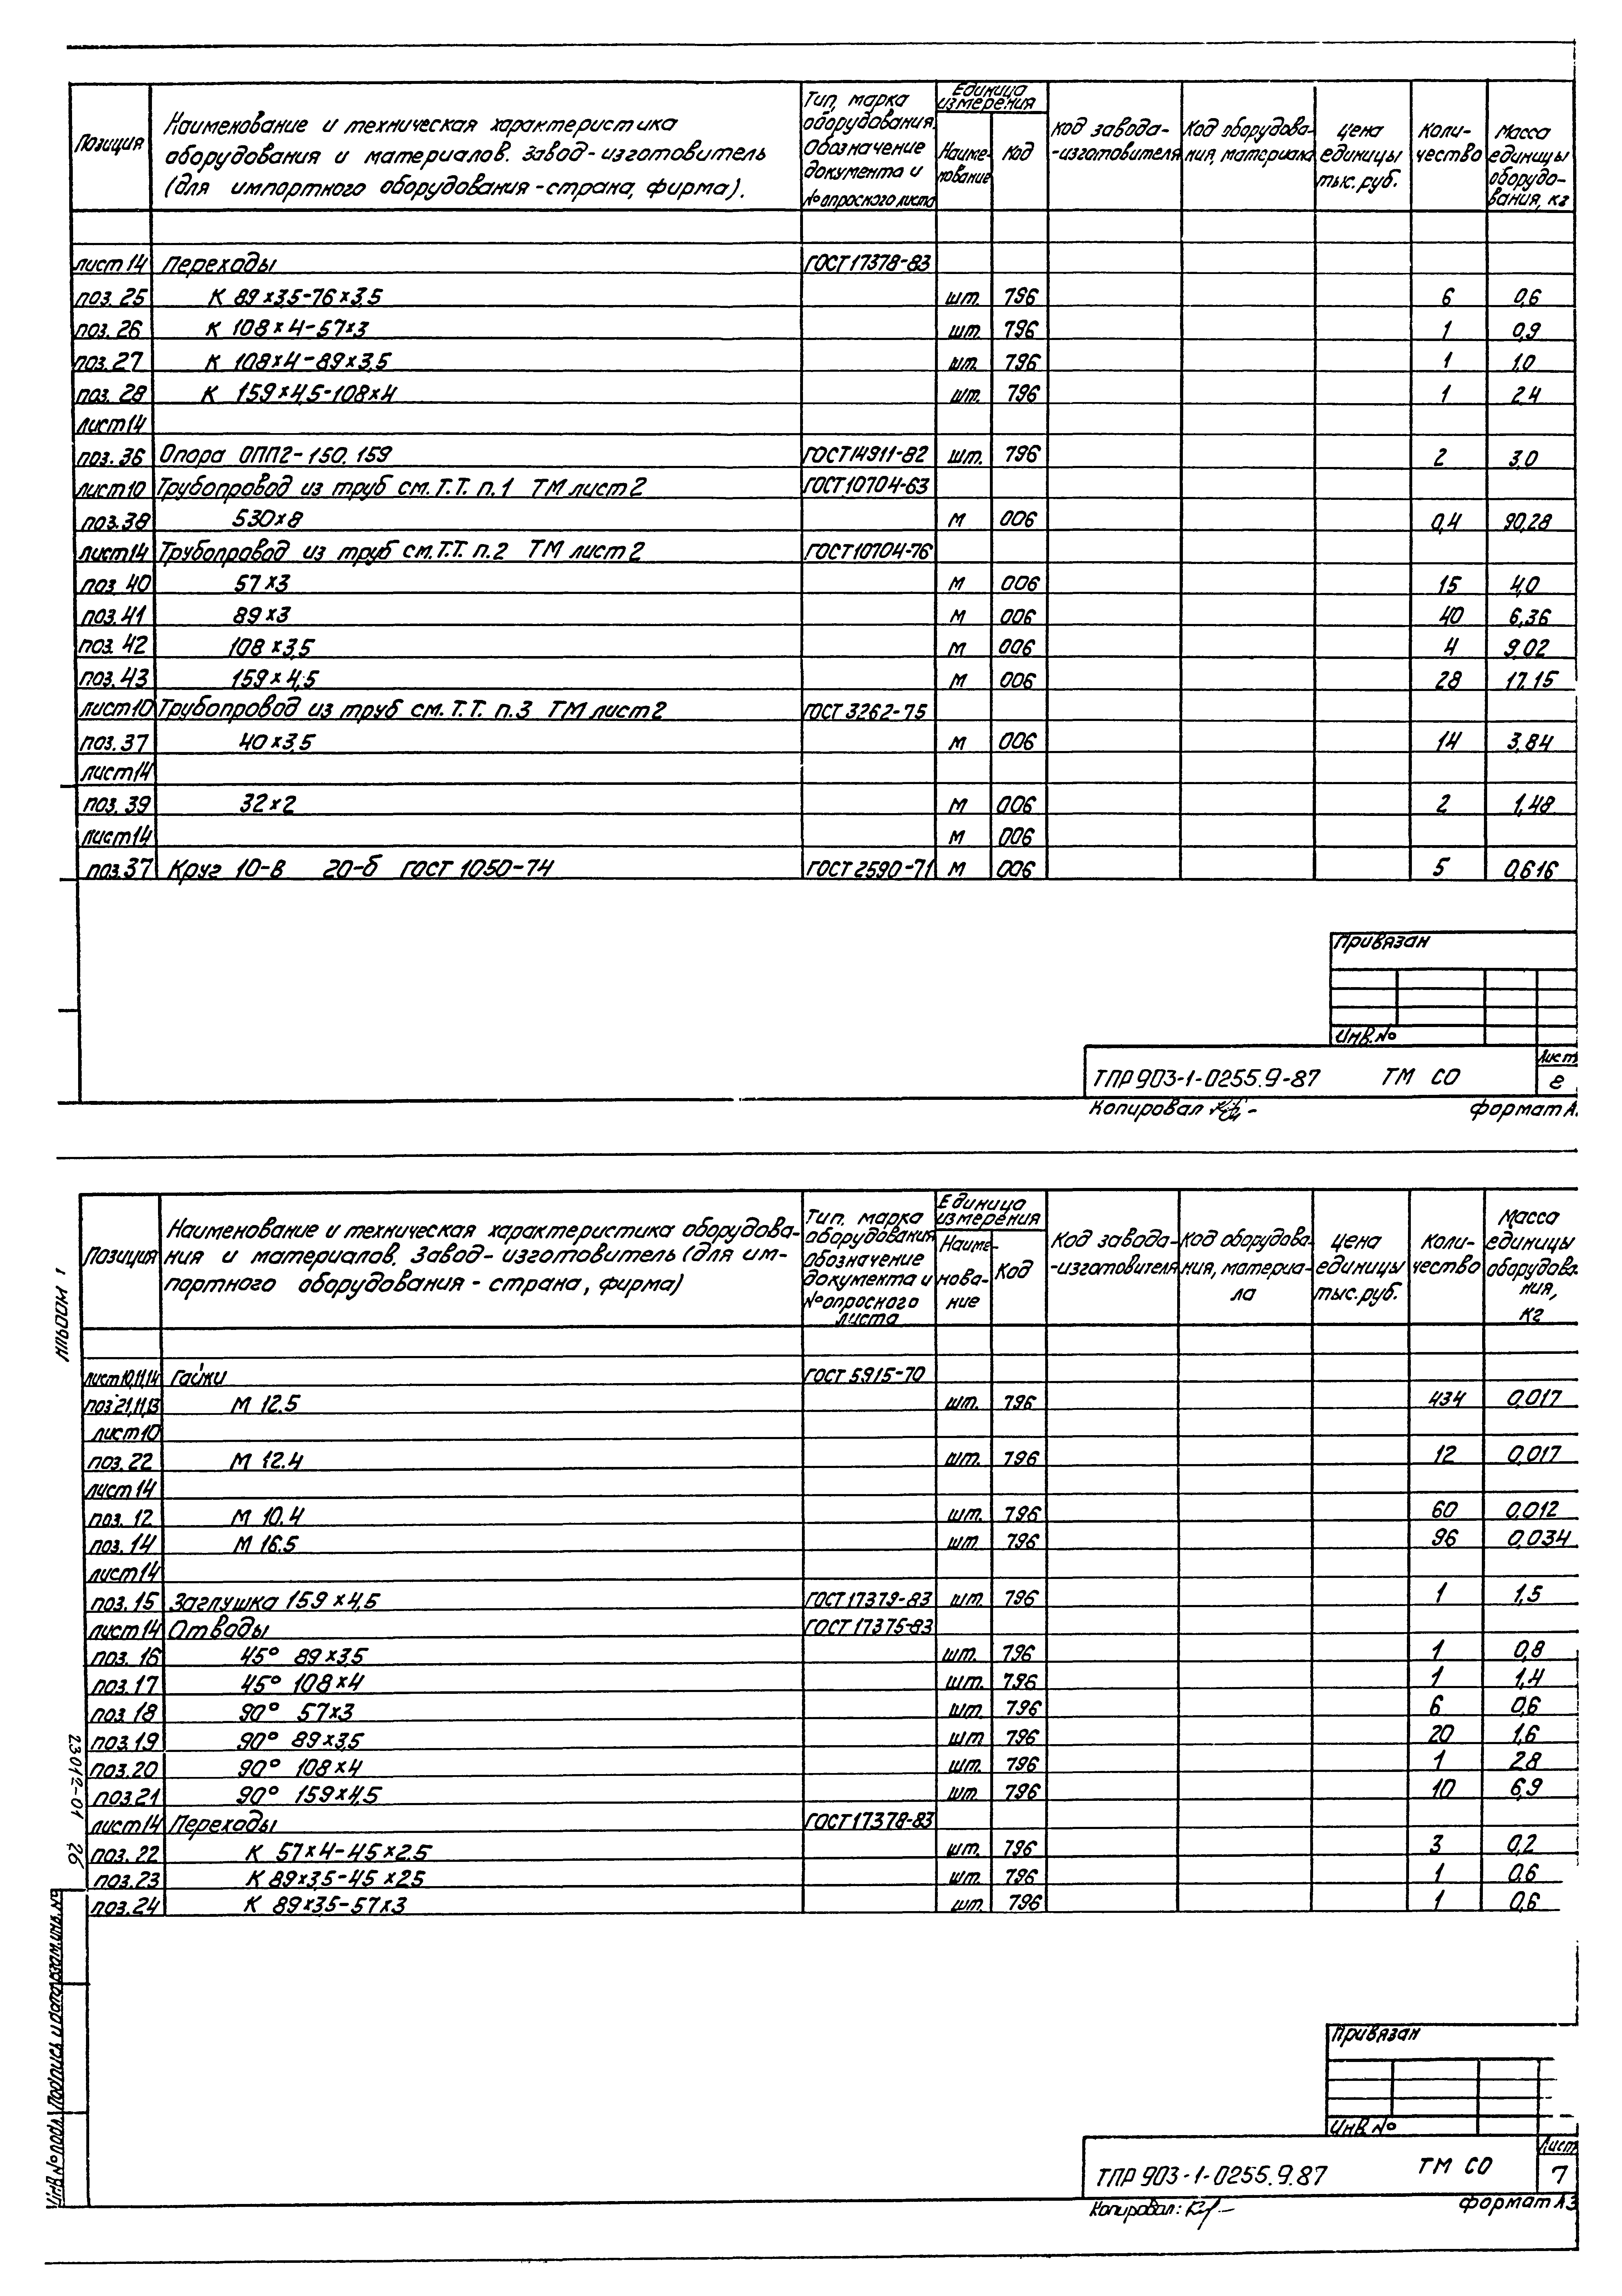 Позиция
Наименование и техническая характеристика
оборудования и материалов. Завод-изготовитель
(для импортного оборудования-страна, фирма).
Тип, марка
оборудования.
Обозначение
документа и
№ опросного листа
Единица
измерения
Наиме-
нование
Код
Код завода-
-изготовителя
Код оборудова-
ния, материала
Цена
единицы
тыс. руб.
Коли-
чество
Масса
единицы
оборудо-
вания, кг
лист 14 Переходы ГОСТ 17378-83
поз. 25 К 89×3,5-76×3,5 шт. 796 6 0,6
поз. 26 К 108×4-57×3 шт. 796 1 0,9
поз. 27 К 108×4-89×3,5 шт. 796 1 1,0
поз. 28 К 159×4,5-108×4 шт. 796 1 2,4
лист 14
поз. 36 Опора ОПП2-150.159 ГОСТ 14911-82 шт. 796 2 3,0
лист 10 Трубопровод из труб см. Т.Т. п.1 ТМ лист 2 ГОСТ 10704-63
поз. 38 530×8 м 006 0,4 90,28
лист 14 Трубопровод из труб см. Т.Т. п.2 ТМ лист 2 ГОСТ 10704-76
поз. 40 57×3 м 006 15 4,0
поз. 41 89×3 м 006 40 6,36
поз. 42 108×3,5 м 006 4 9,02
поз. 43 159×4,5 м 006 28 17,15
лист 10 Трубопровод из труб см. Т.Т. п.3 ТМ лист 2 ГОСТ 3262-75
поз. 37 40×3,5 м 006 14 3,84
лист 14
поз. 39 32×2 м 006 2 1,48
лист 14 м 006
поз. 37 Круг 10-в 20-б ГОСТ 1050-74 ГОСТ 2590-71 м 006 5 0,616
Привязан
Инв. №
ТПР 903-1-0255.9-87 ТМ СО
Лист
8
Копировал
формат А
Позиция
Наименование и техническая характеристика оборудова-
ния и материалов. Завод-изготовитель (для им-
портного оборудования - страна, фирма)
Тип, марка
оборудования
обозначение
документа и
№ опросного
листа
Единица
измерения
Наиме-
нова-
ние
Код
Код завода-
-изготовителя
Код оборудова-
ния, материа-
ла
Цена
единицы
тыс. руб.
Коли-
чество
Масса
единицы
оборудова-
ния,
кг
лист 10,11,14 Гайки ГОСТ 5915-70
поз. 21,11,13 М 12.5 шт. 796 434 0,017
лист 10
поз. 22 М 12.4 шт. 796 12 0,017
лист 14
поз. 12 М 10.4 шт. 796 60 0,012
поз. 14 М 16.5 шт. 796 96 0,034
лист 14
поз. 15 Заглушка 159×4,5 ГОСТ 17379-83 шт. 796 1 1,5
лист 14 Отводы ГОСТ 17375-83
поз. 16 45° 89×3,5 шт. 796 1 0,8
поз. 17 45° 108×4 шт. 796 1 1,4
поз. 18 90° 57×3 шт. 796 6 0,6
поз. 19 90° 89×3,5 шт 796 20 1,6
поз. 20 90° 108×4 шт. 796 1 2,8
поз. 21 90° 159×4,5 шт 796 10 6,9
лист 14 Переходы ГОСТ 17378-83
поз. 22 К 57×4-45×2.5 шт. 796 3 0,2
поз. 23 К 89×3,5-45×25 шт. 796 1 0,6
поз. 24 К 89×3,5-57×3 шт. 796 1 0,6
Альбом 1
23012-01 26
Инв. № подл. Подпись и дата Взам. инв. №
Привязан
Инв. №
ТПР 903-1-0255.9.87 ТМ СО
Лист
7
Копировал:
Формат А3